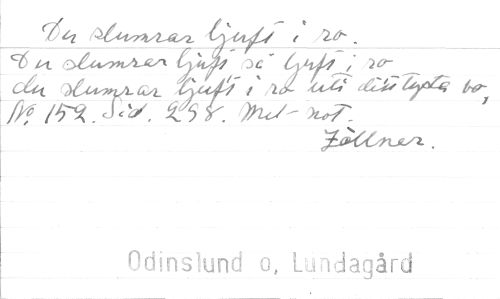 Du slumrar ljuft i ro.
Du slumrar ljuft så ljuft i ro
du slumrar ljuft i ro uti ditt tysta bo,
No. 152. Sid. 298. Mel- not.
Zöllner.
Odinslund o, Lundagård